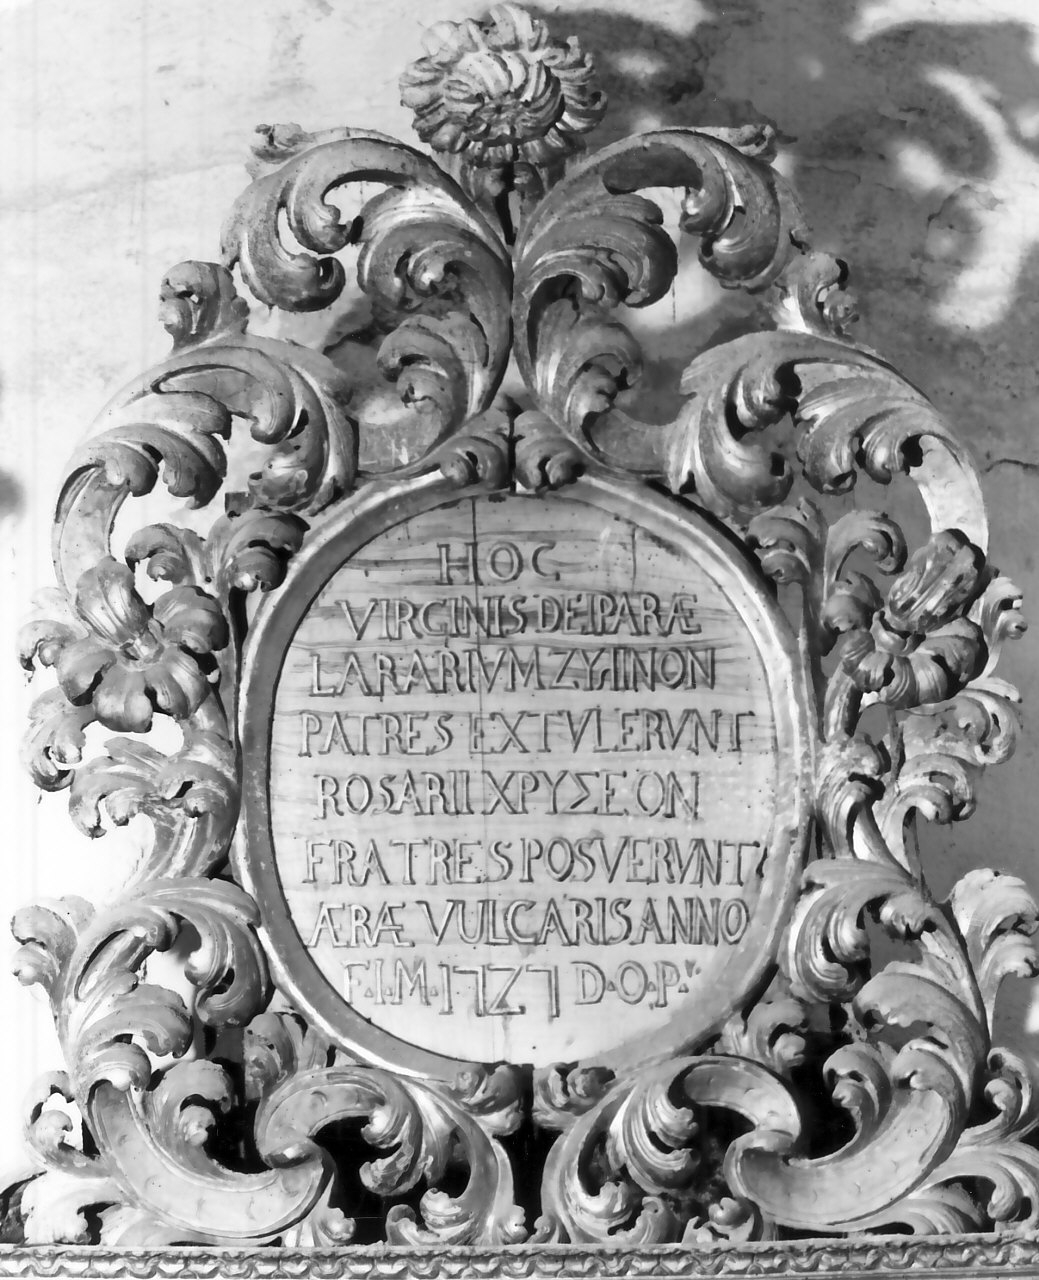 HOC
VIRGINIS DEIPARÆ
LARARIVM ZYLINON
PATRES EXTVLERVNT
ROSARII XPYΣEON
FRATRES POSVERVNT
ÆRÆ VULGARIS ANNO
F.I.M. 1727 D.O.P.